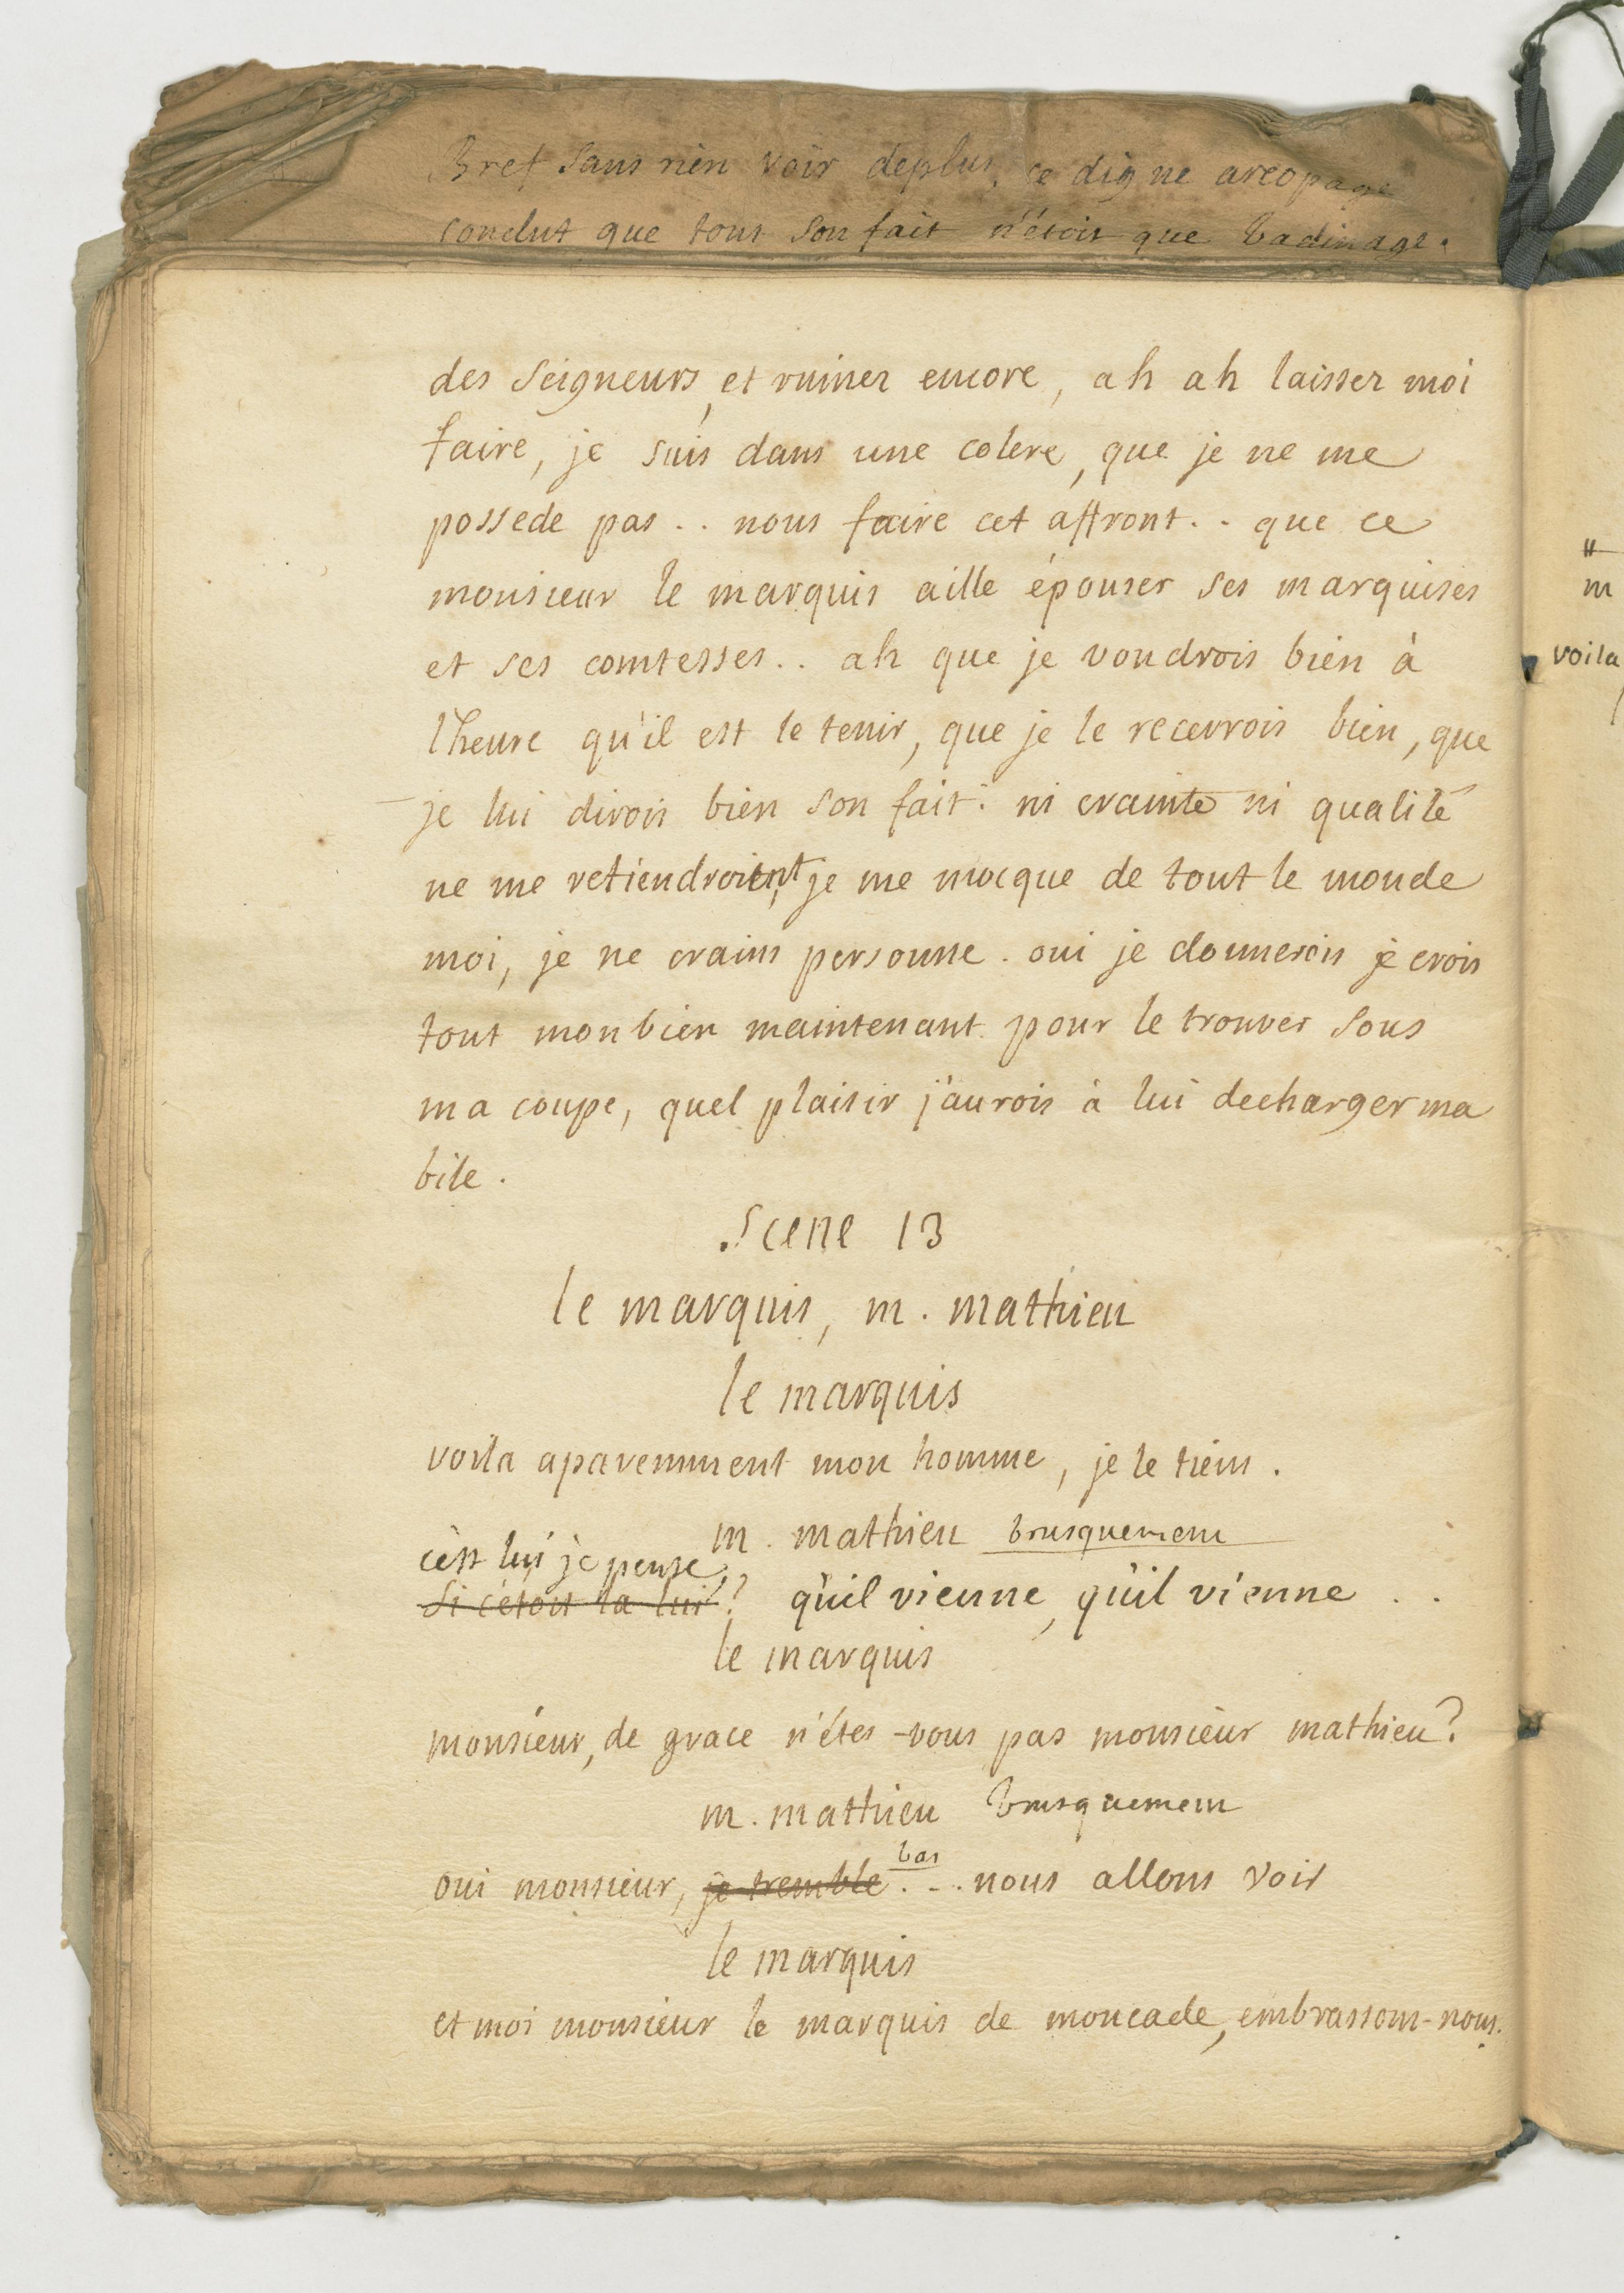 Bref sans rien voir deplus, ce digne areopage
conclut que tout son fait n'étoit que badinage.
des seigneurs, et ruiner encore, ah ah laisser moi
faire, je suis dans une colere, que je ne me
possede pas .. nous faire cet affront .. que ce
monsieur le marquis aille épouser ses marquises
et ses comtesses .. ah que je voudrois bien à
l'heure qu'il est le tenir, que je le recevrois bien, que
je lui dirois bien son fait : ni crainte ni qualité
ne me retiendroient, je me mocque de tout le monde
moi, je ne crains personne . oui je donnerois je crois
tout mon bien maintenant pour le trouver sous
ma coupe, quel plaisir j'aurois à lui decharger ma
bile .
Scene 13
le marquis, m. mathieu
le marquis
voila aparemment mon homme, je le tiens .
m. mathieu brusquement
c'est lui je pense
si c'étoit la lui ? qu'il vienne, qu'il vienne . .
le marquis
monsieur, de grace n'étes-vous pas monsieur mathieu ?
m. mathieu brusquement
bas
oui monsieur, je tremble . .. nous allons voir
le marquis
et moi monsieur le marquis de moncade, embrassons-nous.
m
voila